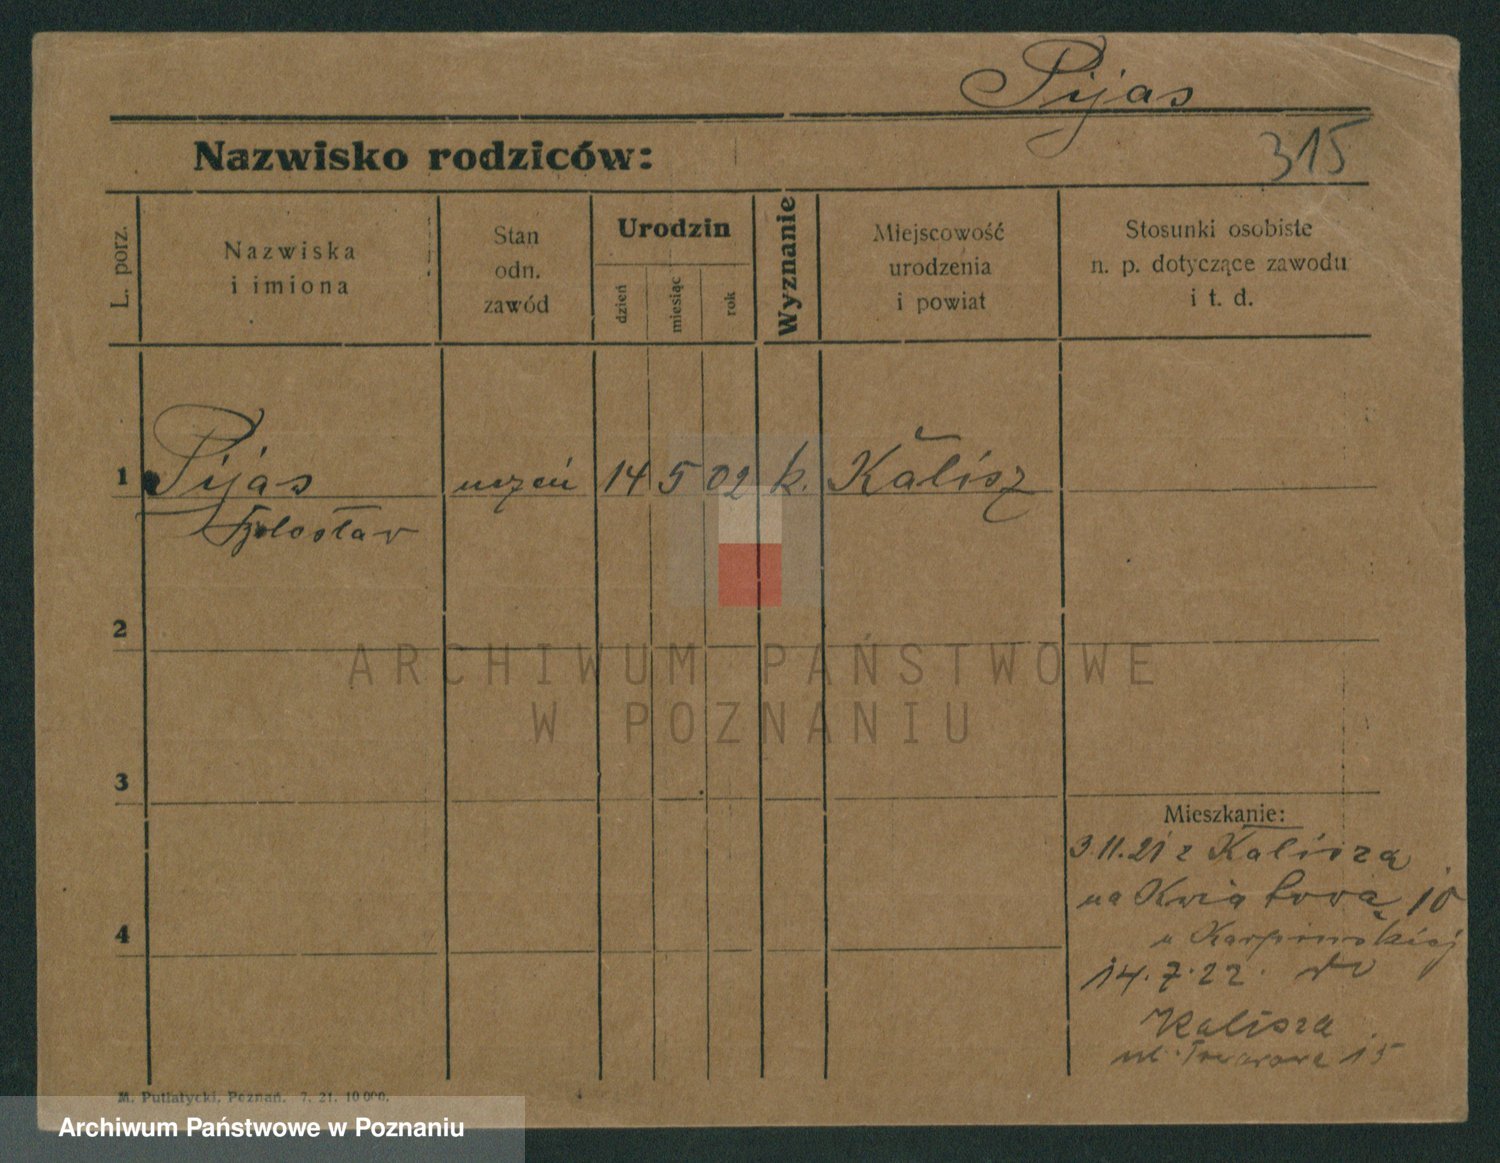 Pijas
315
Nazwisko rodziców:
L. porz.
Nazwiska
i imiona
Stan
odn.
zawód
Urodzin
dzień
miesiąc
rok
Wyznanie
Miejscowość
urodzenia
i powiat
Stosunki osobiste
n. p. dotyczące zawodu
i t. d.
1 Pijas uczeń 14 5 02 k. Kalisz
2
ARCHIWUM PAŃSTWOWE
W POZNANIU
3
Mieszkanie:
3.11.21 z Kalisza
na Kwiatową 10
u Karpińskiej
4
14.7.22. do
Kalisza
ul. 15
M. Putiatycki, Poznań. 7. 21. 10 000.
Archiwum Państwowe w Poznaniu